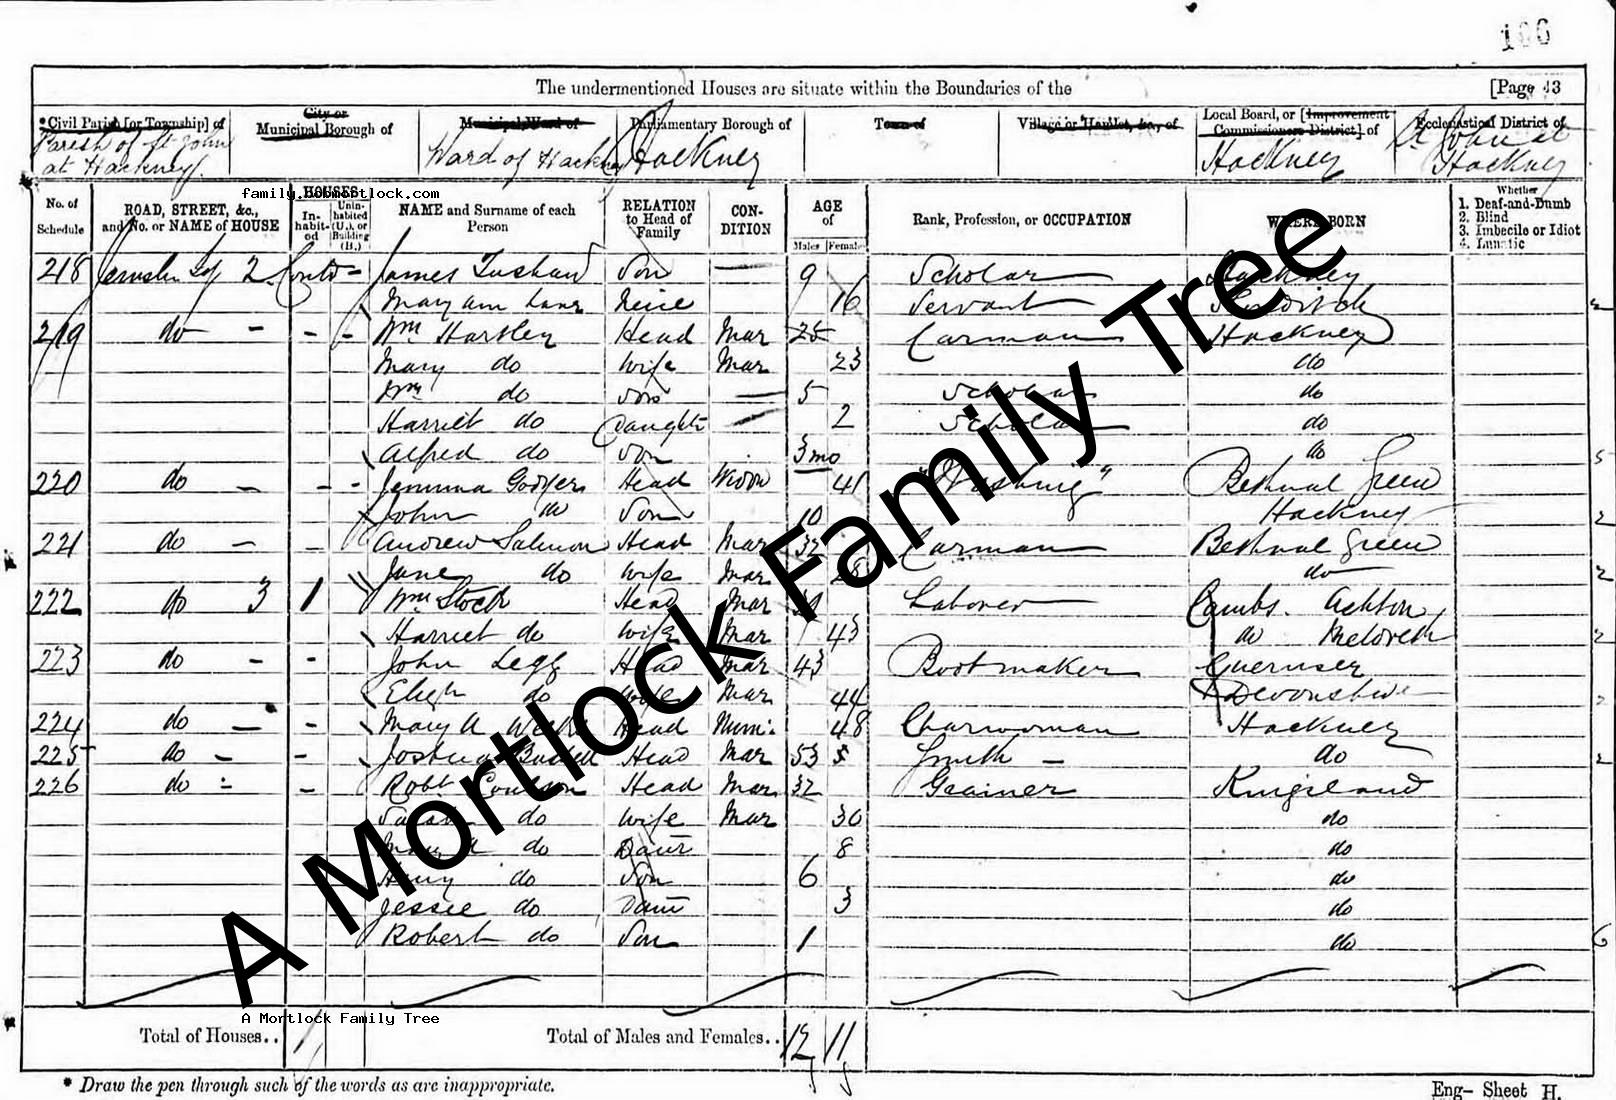 The undermentioned Houses are situate within the Boundaries of the [Page 43
*Civil Parish [or Township] of
City or Municipal Borough of
Municipal Ward of
Parliamentary Borough of
Town of
Village or Hamlet, &c., of
Local Board, or [Improvement Commissioners District] of
Ecclesiastical District of
Parish of St John at Hackney.
Ward of Hackney
Hackney
Hackney
Hackney
family.bobmortlock.com
No. of Schedule
ROAD, STREET, &c., and No. or NAME of HOUSE
HOUSES
In-habit-ed
Unin-habited (U.), or Building (B.)
NAME and Surname of each Person
RELATION to Head of Family
CON-DITION
AGE of
Males Females
Rank, Profession, or OCCUPATION
WHERE BORN
Whether
1. Deaf-and-Dumb
2. Blind
3. Imbecile or Idiot
4. Lunatic
218 2 Contd - James Son — 9 Scholar Hackney
Mary ann Niece 16 Servant
219 do - - - Wm Hartley Head Mar 25 Carman Hackney
Mary do Wife Mar 23 do
Wm do Son — 5 Scholar do
Harriet do Daughtr — 2 Scholar do
Alfred do Son 3mo do
220 do - - - Jemima Head Widow 41 "Washing" Bethnal Green
John do Son 10 Hackney
221 do - - Andrew Salmon Head Mar 32 Carman Bethnal Green
Jane do Wife Mar 28 do
222 do 3 1 Wm Stock Head Mar Laborer Cambs.
Harriet do Wife Mar 43 do Meldreth
223 do - - John Legg Head Mar 43 Bootmaker Guernsey
do Wife Mar 44 Devonshire
224 do - - Mary A Head 48 Charwoman Hackney
225 do - - Joshua Head Mar 53 Smith - do
226 do - - Robt Coulson Head Mar 32 Grainer Kingsland
Sarah do Wife Mar 30 do
Mary A do Daur 8 do
Henry do Son 6 do
Jessie do Daur 3 do
Robert do Son 1 do
A Mortlock Family Tree
A Mortlock Family Tree
Total of Houses.. 1
Total of Males and Females.. 12 11
* Draw the pen through such of the words as are inappropriate.
Eng- Sheet H.